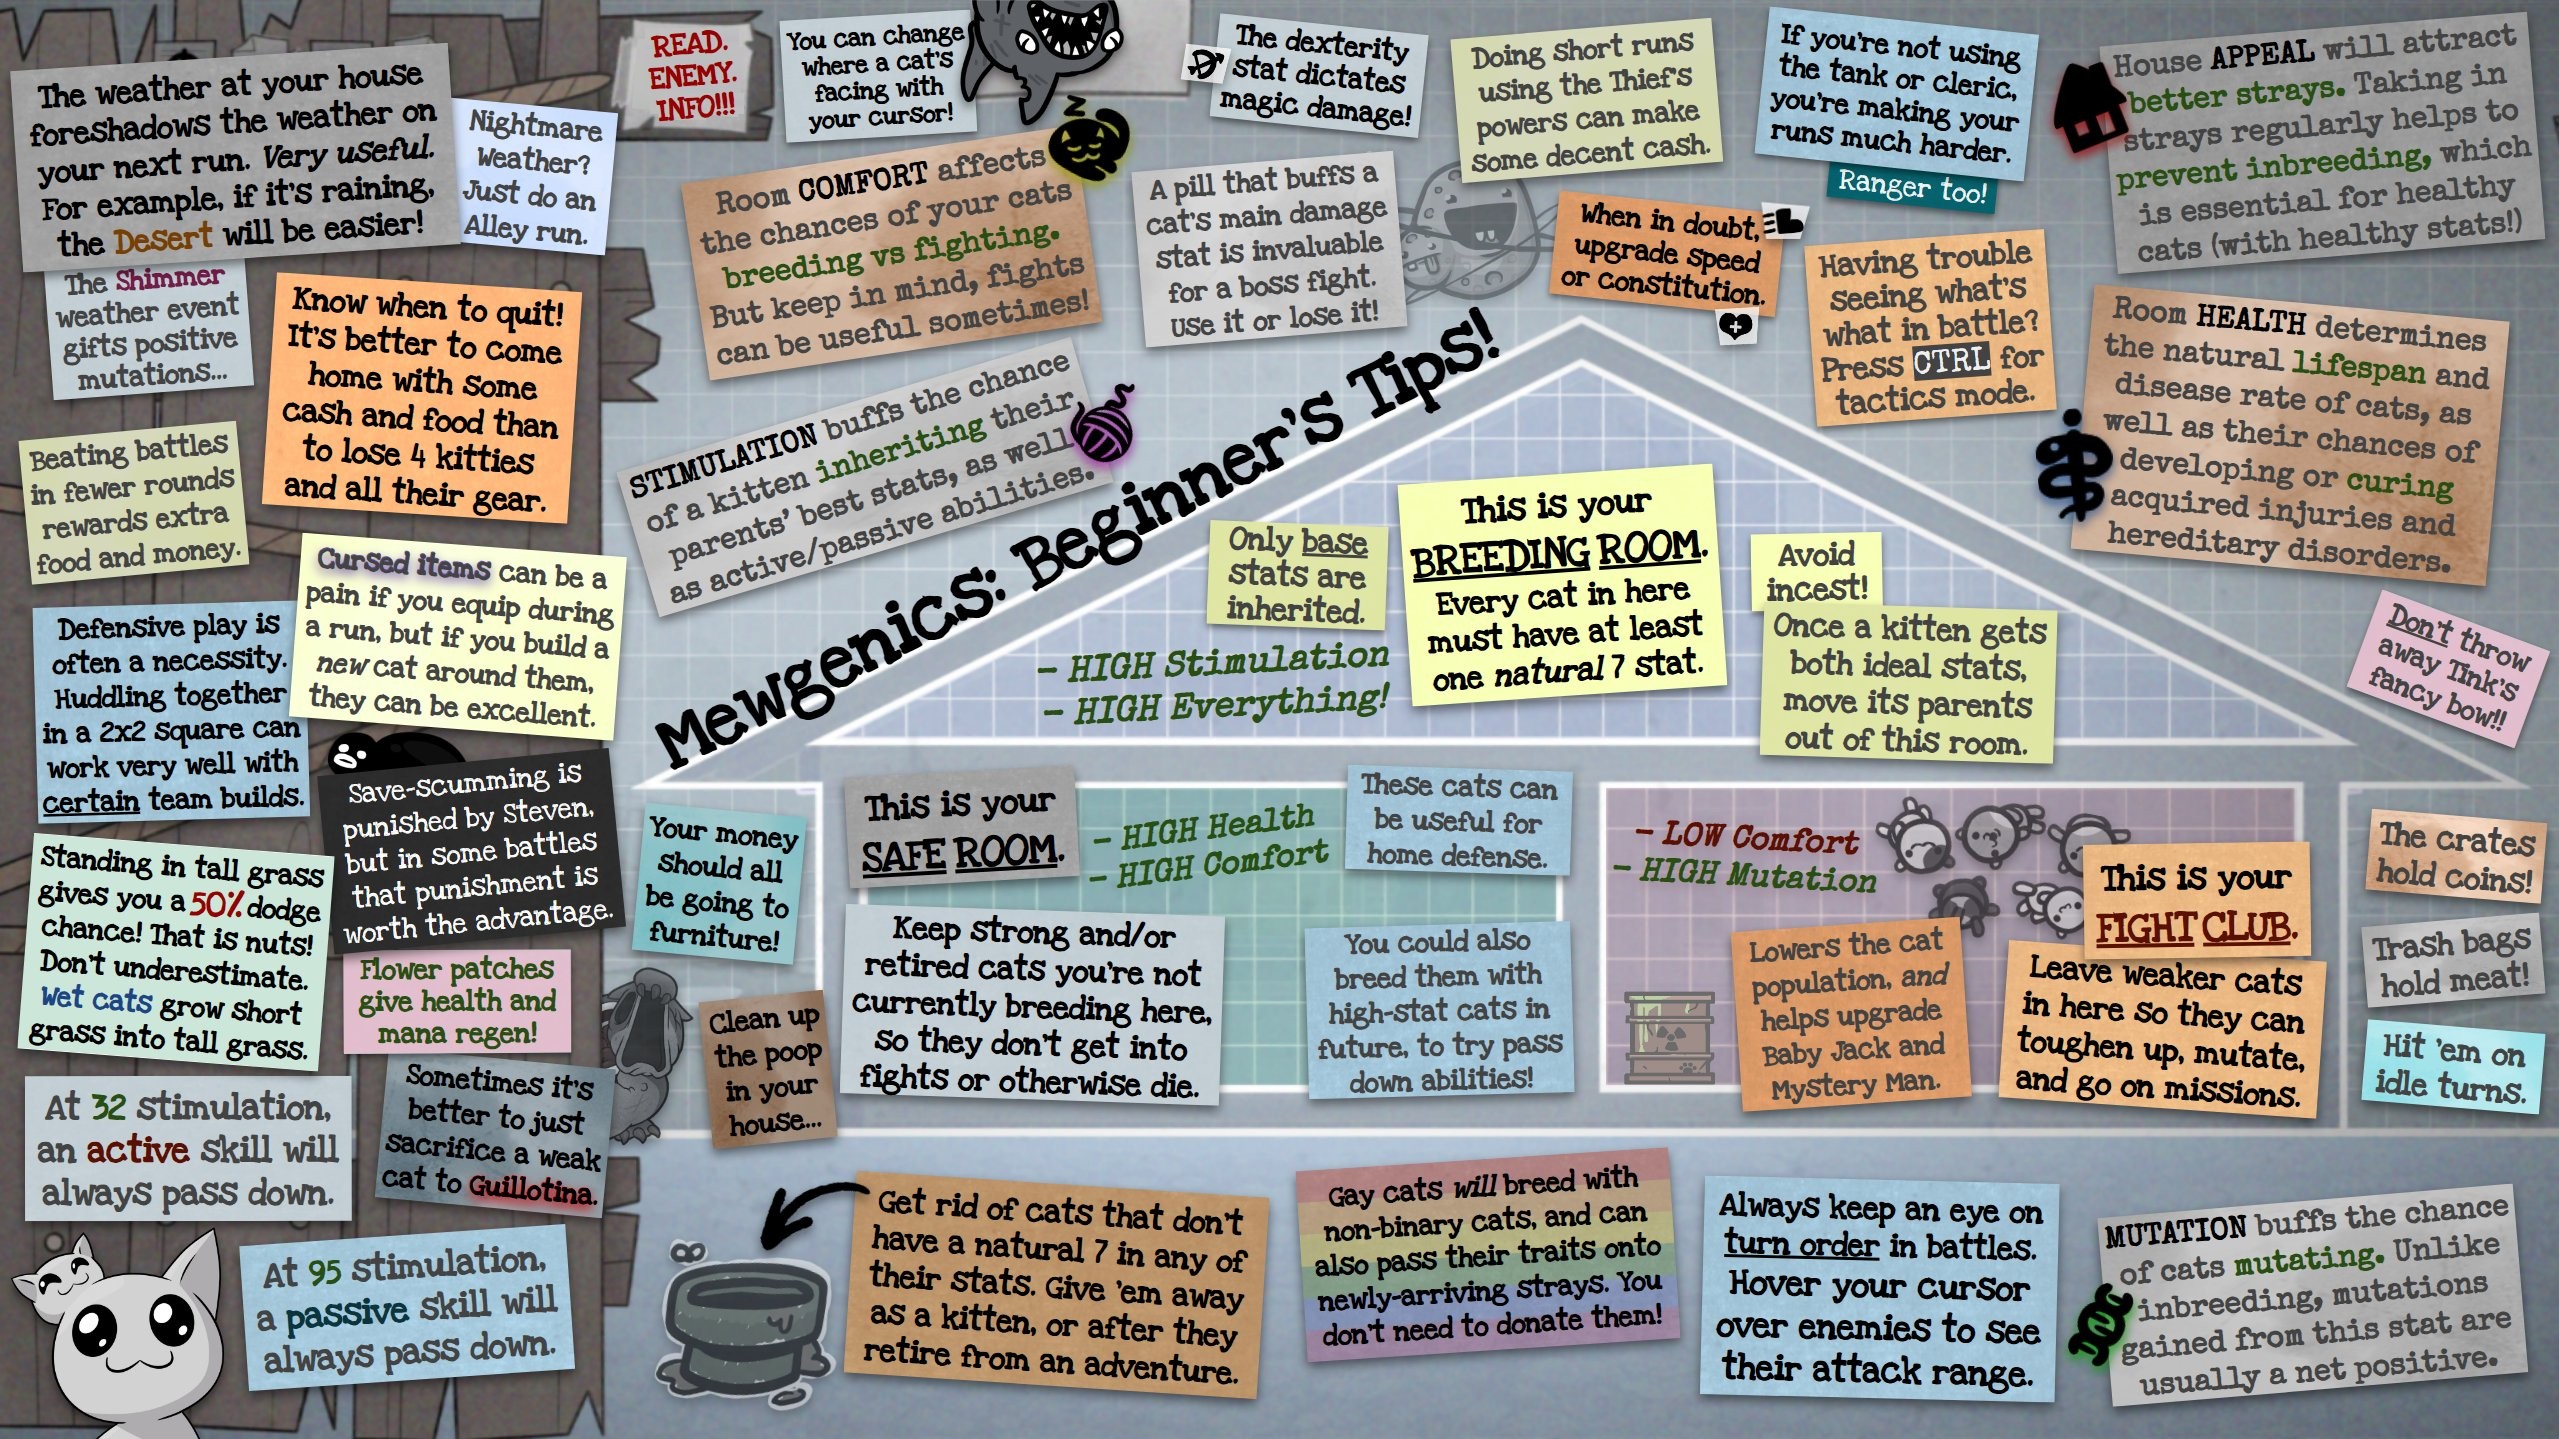 The weather at your house
foreshadows the weather on
your next run. Very useful.
For example, if it's raining,
the Desert will be easier!
Nightmare
Weather?
Just do an
Alley run.
The Shimmer
weather event
gifts positive
mutations...
Know when to quit!
It's better to come
home with some
cash and food than
to lose 4 kitties
and all their gear.
Beating battles
in fewer rounds
rewards extra
food and money.
Cursed items can be a
pain if you equip during
a run, but if you build a
new cat around them,
they can be excellent.
Defensive play is
often a necessity.
Huddling together
in a 2x2 square can
work very well with
certain team builds.
Save-scumming is
punished by Steven,
but in some battles
that punishment is
worth the advantage.
Standing in tall grass
gives you a 50% dodge
chance! That is nuts!
Don't underestimate.
Wet cats grow short
grass into tall grass.
Flower patches
give health and
mana regen!
At 32 stimulation,
an active skill will
always pass down.
Sometimes it's
better to just
sacrifice a weak
cat to Guillotina.
At 95 stimulation,
a passive skill will
always pass down.
READ.
ENEMY.
INFO!!!
You can change
where a cat's
facing with
your cursor!
Room COMFORT affects
the chances of your cats
breeding vs fighting.
But keep in mind, fights
can be useful sometimes!
STIMULATION buffs the chance
of a kitten inheriting their
parents' best stats, as well
as active/passive abilities.
The dexterity
stat dictates
magic damage!
A pill that buffs a
cat's main damage
stat is invaluable
for a boss fight.
Use it or lose it!
Doing short runs
using the Thief's
powers can make
some decent cash.
When in doubt,
upgrade speed
or constitution.
If you're not using
the tank or cleric,
you're making your
runs much harder.
Ranger too!
Having trouble
seeing what's
what in battle?
Press CTRL for
tactics mode.
House APPEAL will attract
better strays. Taking in
strays regularly helps to
prevent inbreeding, which
is essential for healthy
cats (with healthy stats!)
Room HEALTH determines
the natural lifespan and
disease rate of cats, as
well as their chances of
developing or curing
acquired injuries and
hereditary disorders.
Don't throw
away Tink's
fancy bow!!
Mewgenics: Beginner's Tips!
Only base
stats are
inherited.
- HIGH Stimulation
- HIGH Everything!
This is your
BREEDING ROOM.
Every cat in here
must have at least
one natural 7 stat.
Avoid
incest!
Once a kitten gets
both ideal stats,
move its parents
out of this room.
Your money
should all
be going to
furniture!
Clean up
the poop
in your
house...
This is your
SAFE ROOM.
- HIGH Health
- HIGH Comfort
These cats can
be useful for
home defense.
Keep strong and/or
retired cats you're not
currently breeding here,
so they don't get into
fights or otherwise die.
You could also
breed them with
high-stat cats in
future, to try pass
down abilities!
- LOW Comfort
- HIGH Mutation
This is your
FIGHT CLUB.
Lowers the cat
population, and
helps upgrade
Baby Jack and
Mystery Man.
Leave weaker cats
in here so they can
toughen up, mutate,
and go on missions.
The crates
hold coins!
Trash bags
hold meat!
Hit 'em on
idle turns.
Get rid of cats that don't
have a natural 7 in any of
their stats. Give 'em away
as a kitten, or after they
retire from an adventure.
Gay cats will breed with
non-binary cats, and can
also pass their traits onto
newly-arriving strays. You
don't need to donate them!
Always keep an eye on
turn order in battles.
Hover your cursor
over enemies to see
their attack range.
MUTATION buffs the chance
of cats mutating. Unlike
inbreeding, mutations
gained from this stat are
usually a net positive.